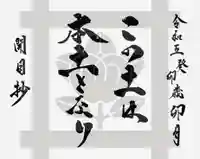 令和五癸卯歳卯月
この土は
本土となり
開目抄